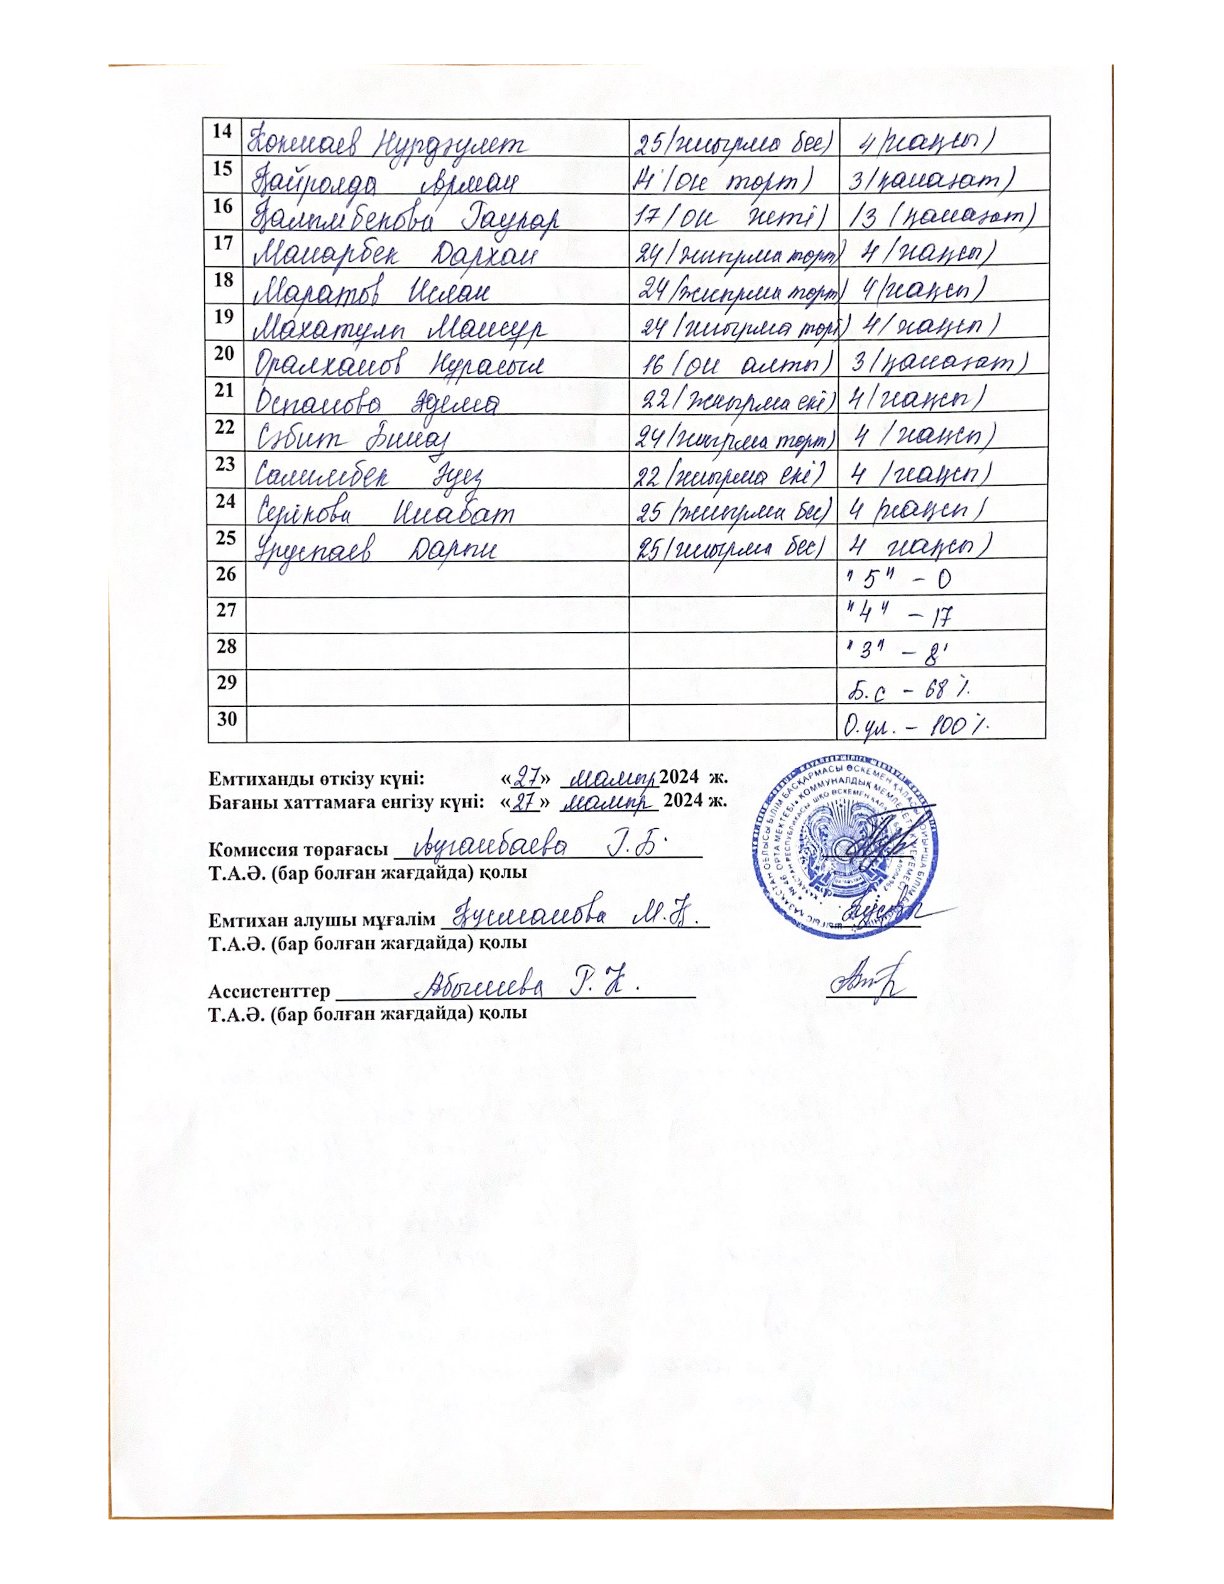 14 Конмаев Нурдәулет 25/жиырма бес) 4/жақсы)
15 Қайролда Арман 14 (он төрт) 3/қанағат)
16 Қалымбекова Гауһар 17/он жеті) 3 (қанағат)
17 Манарбек Дархан 24/жиырма төрт) 4/жақсы)
18 Маратов Ислам 24/жиырма төрт) 4/жақсы)
19 Махатұлы Мансур 24/жиырма төрт) 4/жақсы)
20 Оралханов Нұрасыл 16/он алты) 3/қанағат)
21 Оспанова Әдема 22/жиырма екі) 4/жақсы)
22 Сәбит Биназ 24/жиырма төрт) 4/жақсы)
23 Салимбек 22/жиырма екі) 4/жақсы)
24 Серікова Инабат 25/жиырма бес) 4/жақсы)
25 Уруспаев Дарын 25/жиырма бес) 4 жақсы)
26 "5" – 0
27 "4" – 17
28 "3" – 8
29 Б.с – 68%
30 О.үл. – 100%
Емтиханды өткізу күні: «27» мамыр 2024 ж.
Бағаны хаттамаға енгізу күні: «27» мамыр 2024 ж.
Комиссия төрағасы Ауганбаева Г.Б.
Т.А.Ә. (бар болған жағдайда) қолы
Емтихан алушы мұғалім Құсманова М.Қ.
Т.А.Ә. (бар болған жағдайда) қолы
Ассистенттер Абышева Г.К.
Т.А.Ә. (бар болған жағдайда) қолы